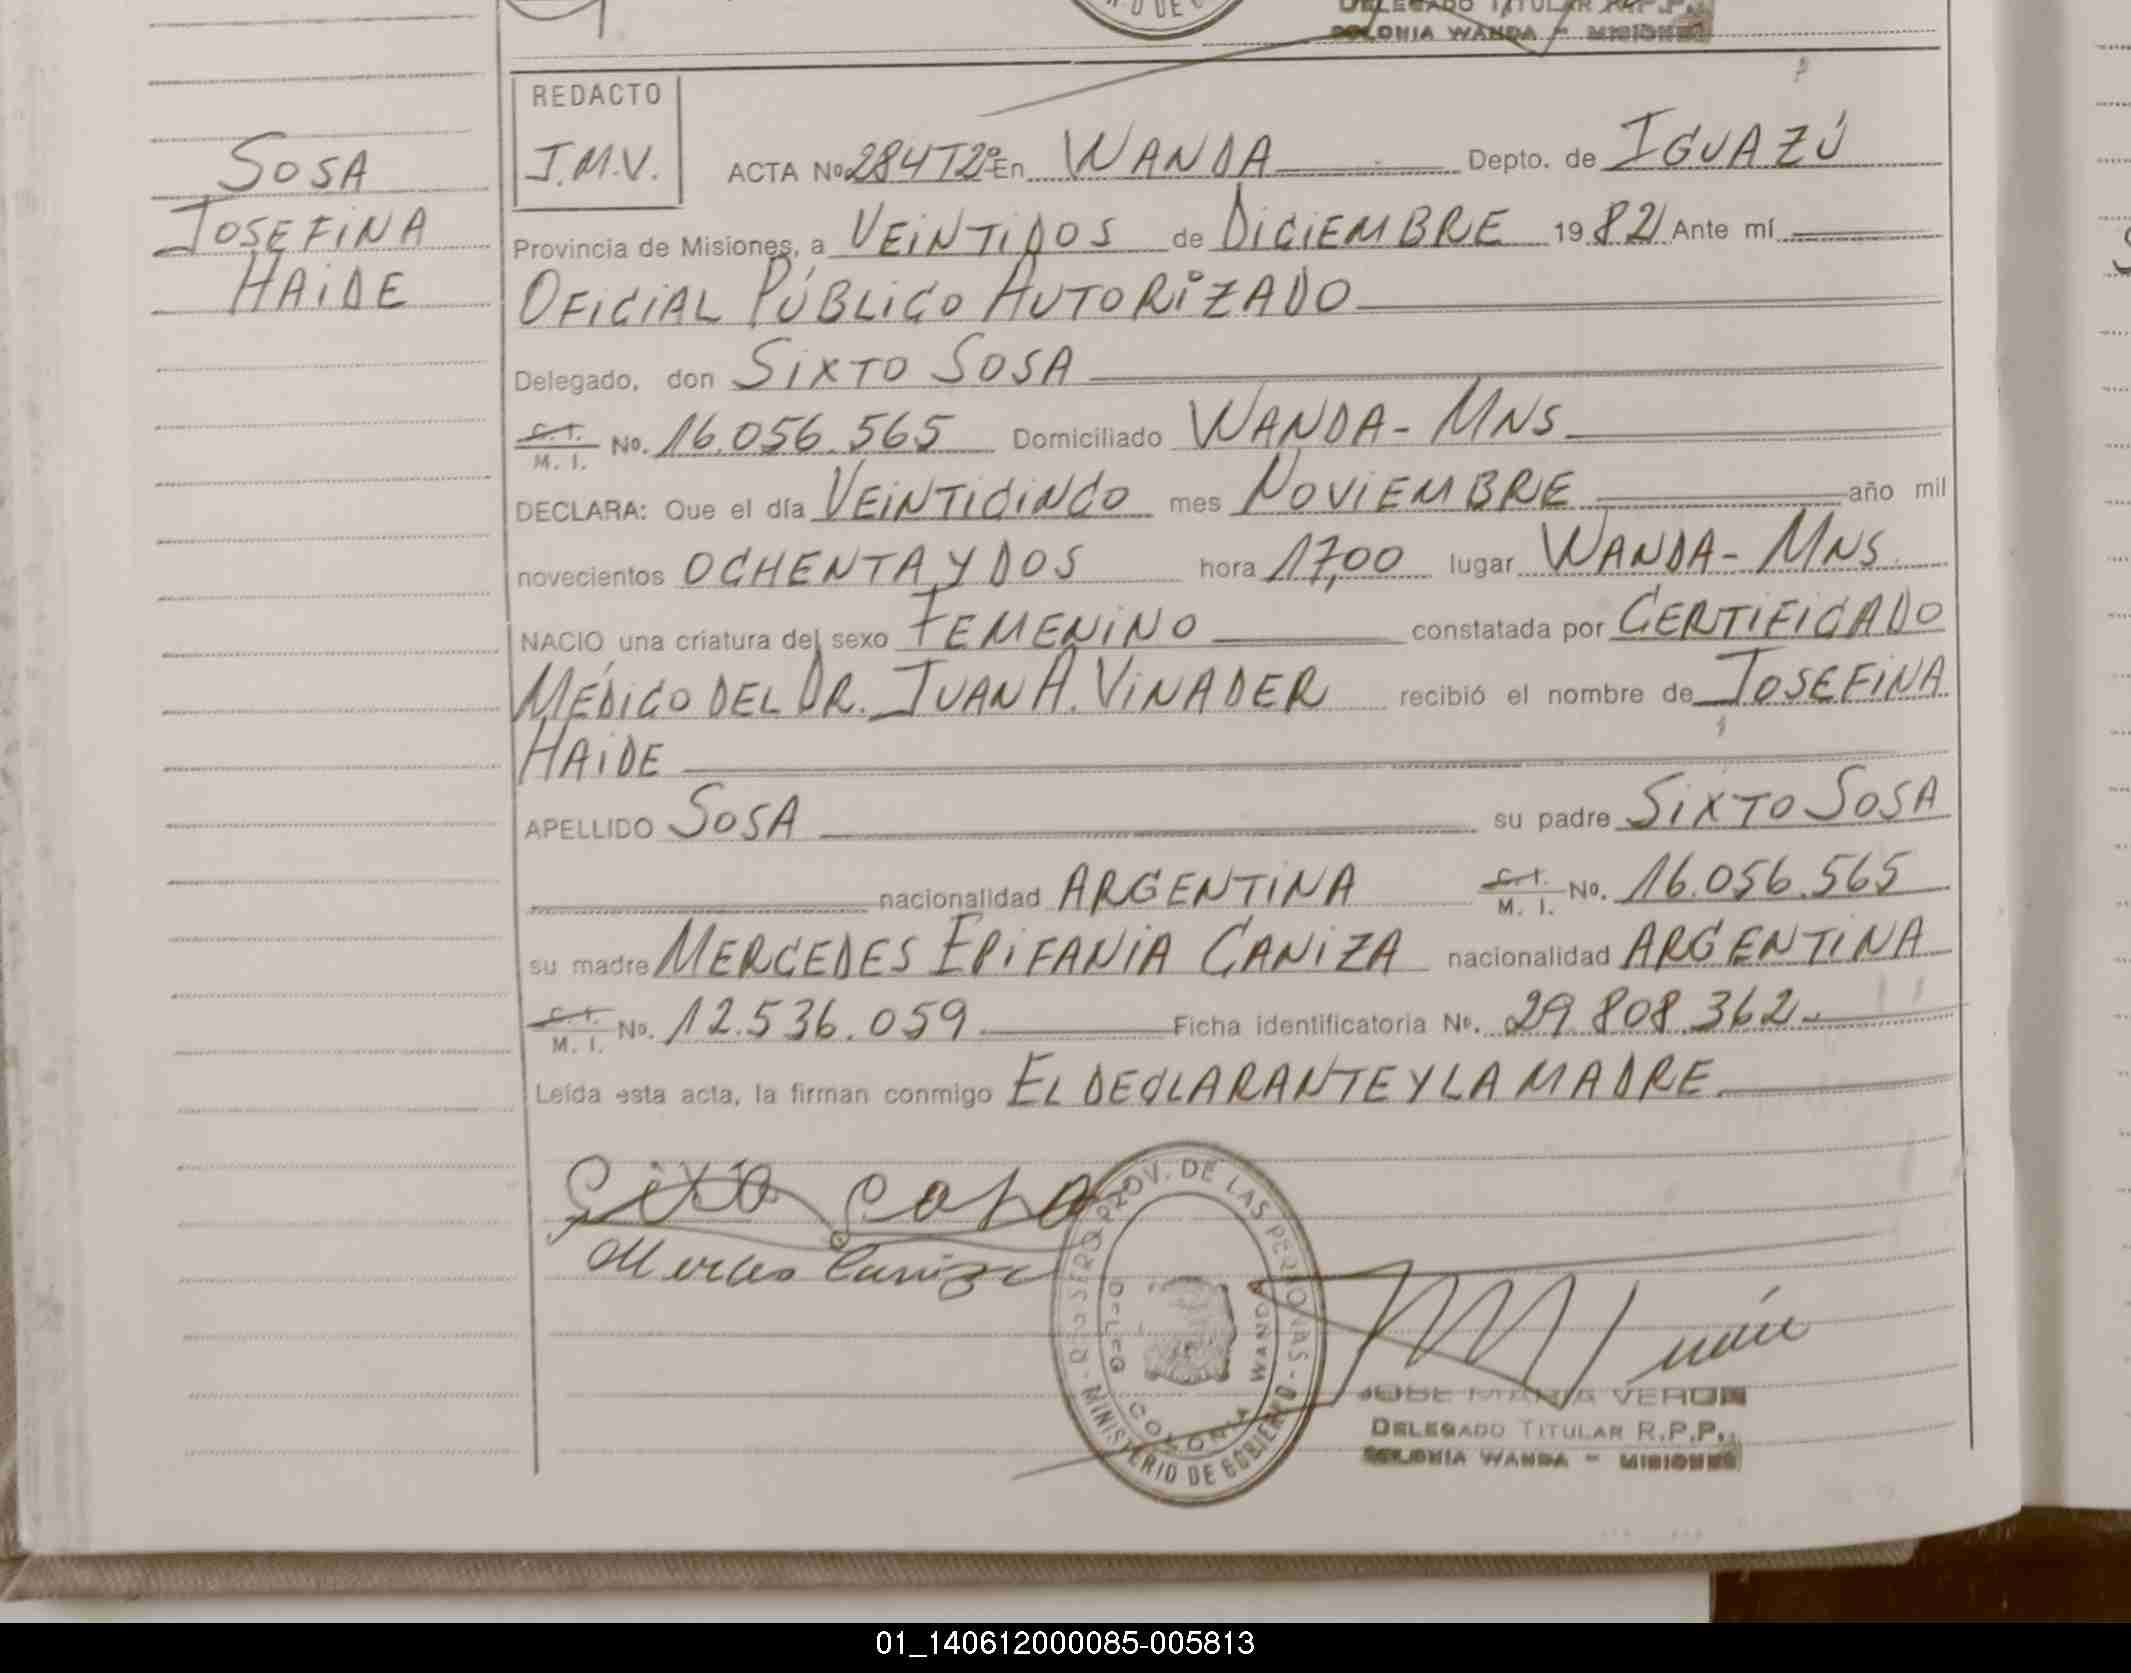 DELEGADO TITULAR R.P.P.
COLONIA WANDA - MISIONES
SOSA
JOSEFINA
HAIDE
REDACTO
J.M.V.
ACTA No 284T2º En WANDA Depto. de IGUAZÚ
Provincia de Misiones, a VEINTIDOS de DICIEMBRE 1982 Ante mí
OFICIAL PÚBLICO AUTORIZADO
Delegado, don SIXTO SOSA
C.I. M. I. No. 16.056.565 Domiciliado WANDA - MNS
DECLARA: Que el día VEINTICINCO mes NOVIEMBRE año mil
novecientos OCHENTA Y DOS hora 17,00 lugar WANDA - MNS.
NACIO una criatura del sexo FEMENINO constatada por CERTIFICADO
MÉDICO DEL DR. JUAN A. VINADER recibió el nombre de JOSEFINA
HAIDE
APELLIDO SOSA su padre SIXTO SOSA
nacionalidad ARGENTINA C.I. M. I. No. 16.056.565
su madre MERCEDES EPIFANIA CANIZA nacionalidad ARGENTINA
C.I. M. I. No. 12.536.059 Ficha identificatoria No. 29.808.362.-
Leída esta acta, la firman conmigo EL DECLARANTE Y LA MADRE
Sixto Sosa
Mercedes Caniza
REGISTRO PROV. DE LAS PERSONAS - MINISTERIO DE GOBIERNO -
DELEG. COLONIA WANDA
JOSE MARIA VERON
DELEGADO TITULAR R.P.P.
COLONIA WANDA - MISIONES
01_140612000085-005813